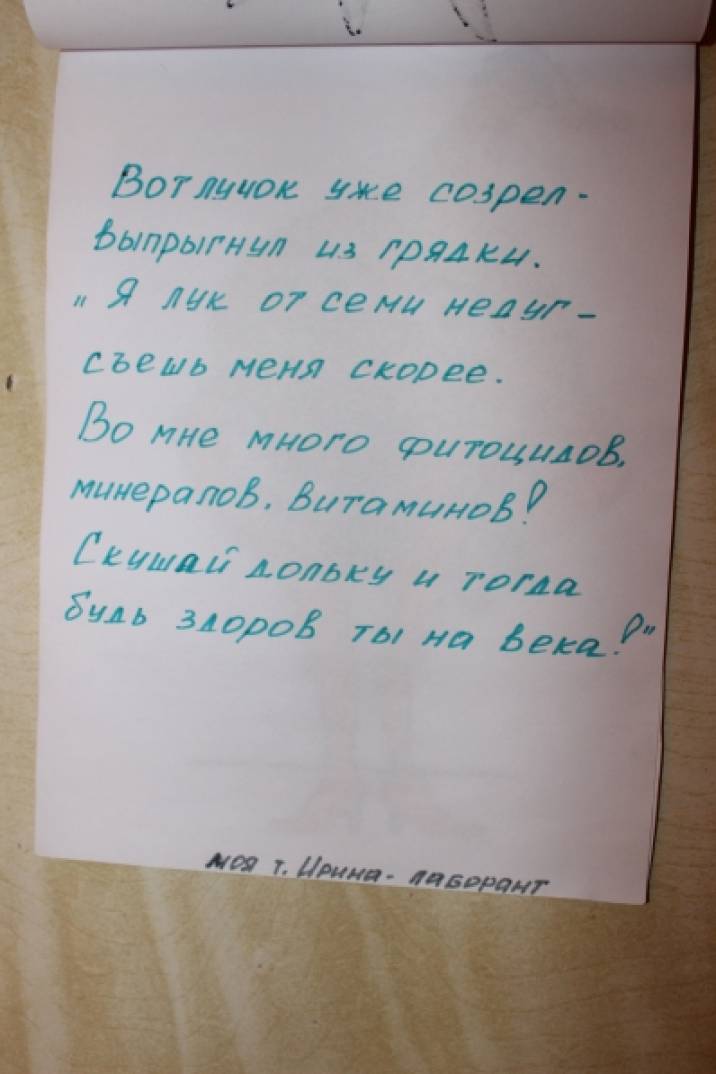 Вот лучок уже созрел -
выпрыгнул из грядки.
„ Я лук от семи недуг –
съешь меня скорее.
Во мне много фитоцидов,
минералов, витаминов!
Скушай дольку и тогда
будь здоров ты на века!"
моя т. Ирина - лаборант